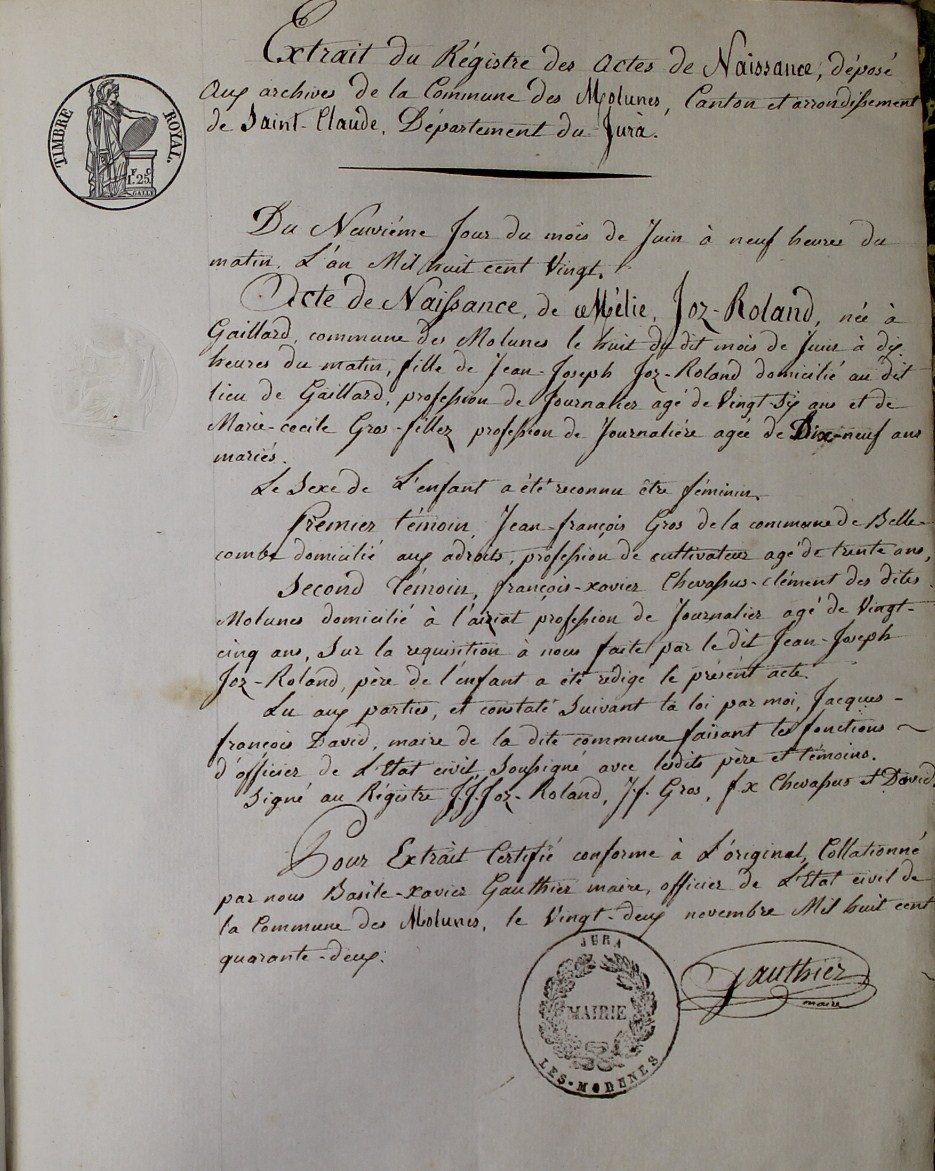 TIMBRE ROYAL.
F. C.
1.25.
Extrait du Régistre des actes de Naissance, déposé
aux archives de la Commune des Molunes, Canton et arrondissement
de Saint-Claude, Département du Jura.
Du Neuviéme Jour du mois de Juin à neuf heures du
matin. L'an Mil huit cent Vingt.
Acte de Naissance, de Mélie, Joz-Roland, née à
Gaillard, commune des Molunes le huit du dit mois de Juin à dix
heures du matin, fille de Jean-Joseph Joz-Roland domicilié au dit
lieu de Gaillard, profession de Journalier agé de Vingt-Six ans et de
Marie-cecile Gros-fillez profession de Journalière agée de Dix-neuf ans
mariés.
Le Sexe de L'enfant a été reconnu être féminin.
Premier témoin Jean-françois Gros de la commune de Belle-
combe domicilié aux adroits, profession de cultivateur agé de trente ans,
Second témoin, françois-xavier Chevassus-clément des dites
Molunes domicilié à profession de Journalier agé de Vingt-
cinq ans, Sur la requisition à nous faite par le dit Jean-Joseph
Joz-Roland, père de l'enfant a été rédigé le présent acte.
Lu aux parties, et constaté Suivant la loi par moi, Jacques-
françois David, maire de la dite commune faisant les fonctions
d'officier de L'Etat civil, Soussigné avec lesdits père et témoins.
Signé au Régistre J.J. Joz-Roland, J.f. Gros, f x Chevassus et David.
Pour Extrait Certifié conforme à L'original, Collationné
par nous Basile-xavier Gauthier maire, officier de L'Etat civil de
la Commune des Molunes, le Vingt-deux novembre Mil huit cent
quarante-deux.
JURA
MAIRIE
LES-MODENES
Gauthier
maire